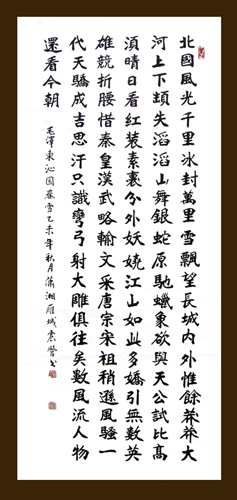 北國風光千里冰封萬里雪飄望長城內外惟餘莽莽大
河上下頓失滔滔山舞銀蛇原馳蠟象欲與天公試比高
湏晴日看紅裝素裹分外妖嬈江山如此多嬌引無數英
雄競折腰惜秦皇漢武略輸文采唐宗宋祖稍遜風騷一
代天驕成吉思汗只識彎弓射大雕俱往矣數風流人物
還看今朝
毛澤東沁園春雪乙未年秋月瀟湘雁城